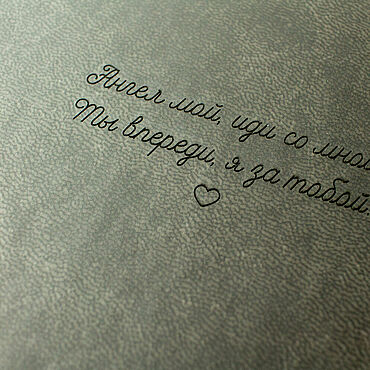 Ангел мой, иди со мной
Ты впереди, я за тобой.